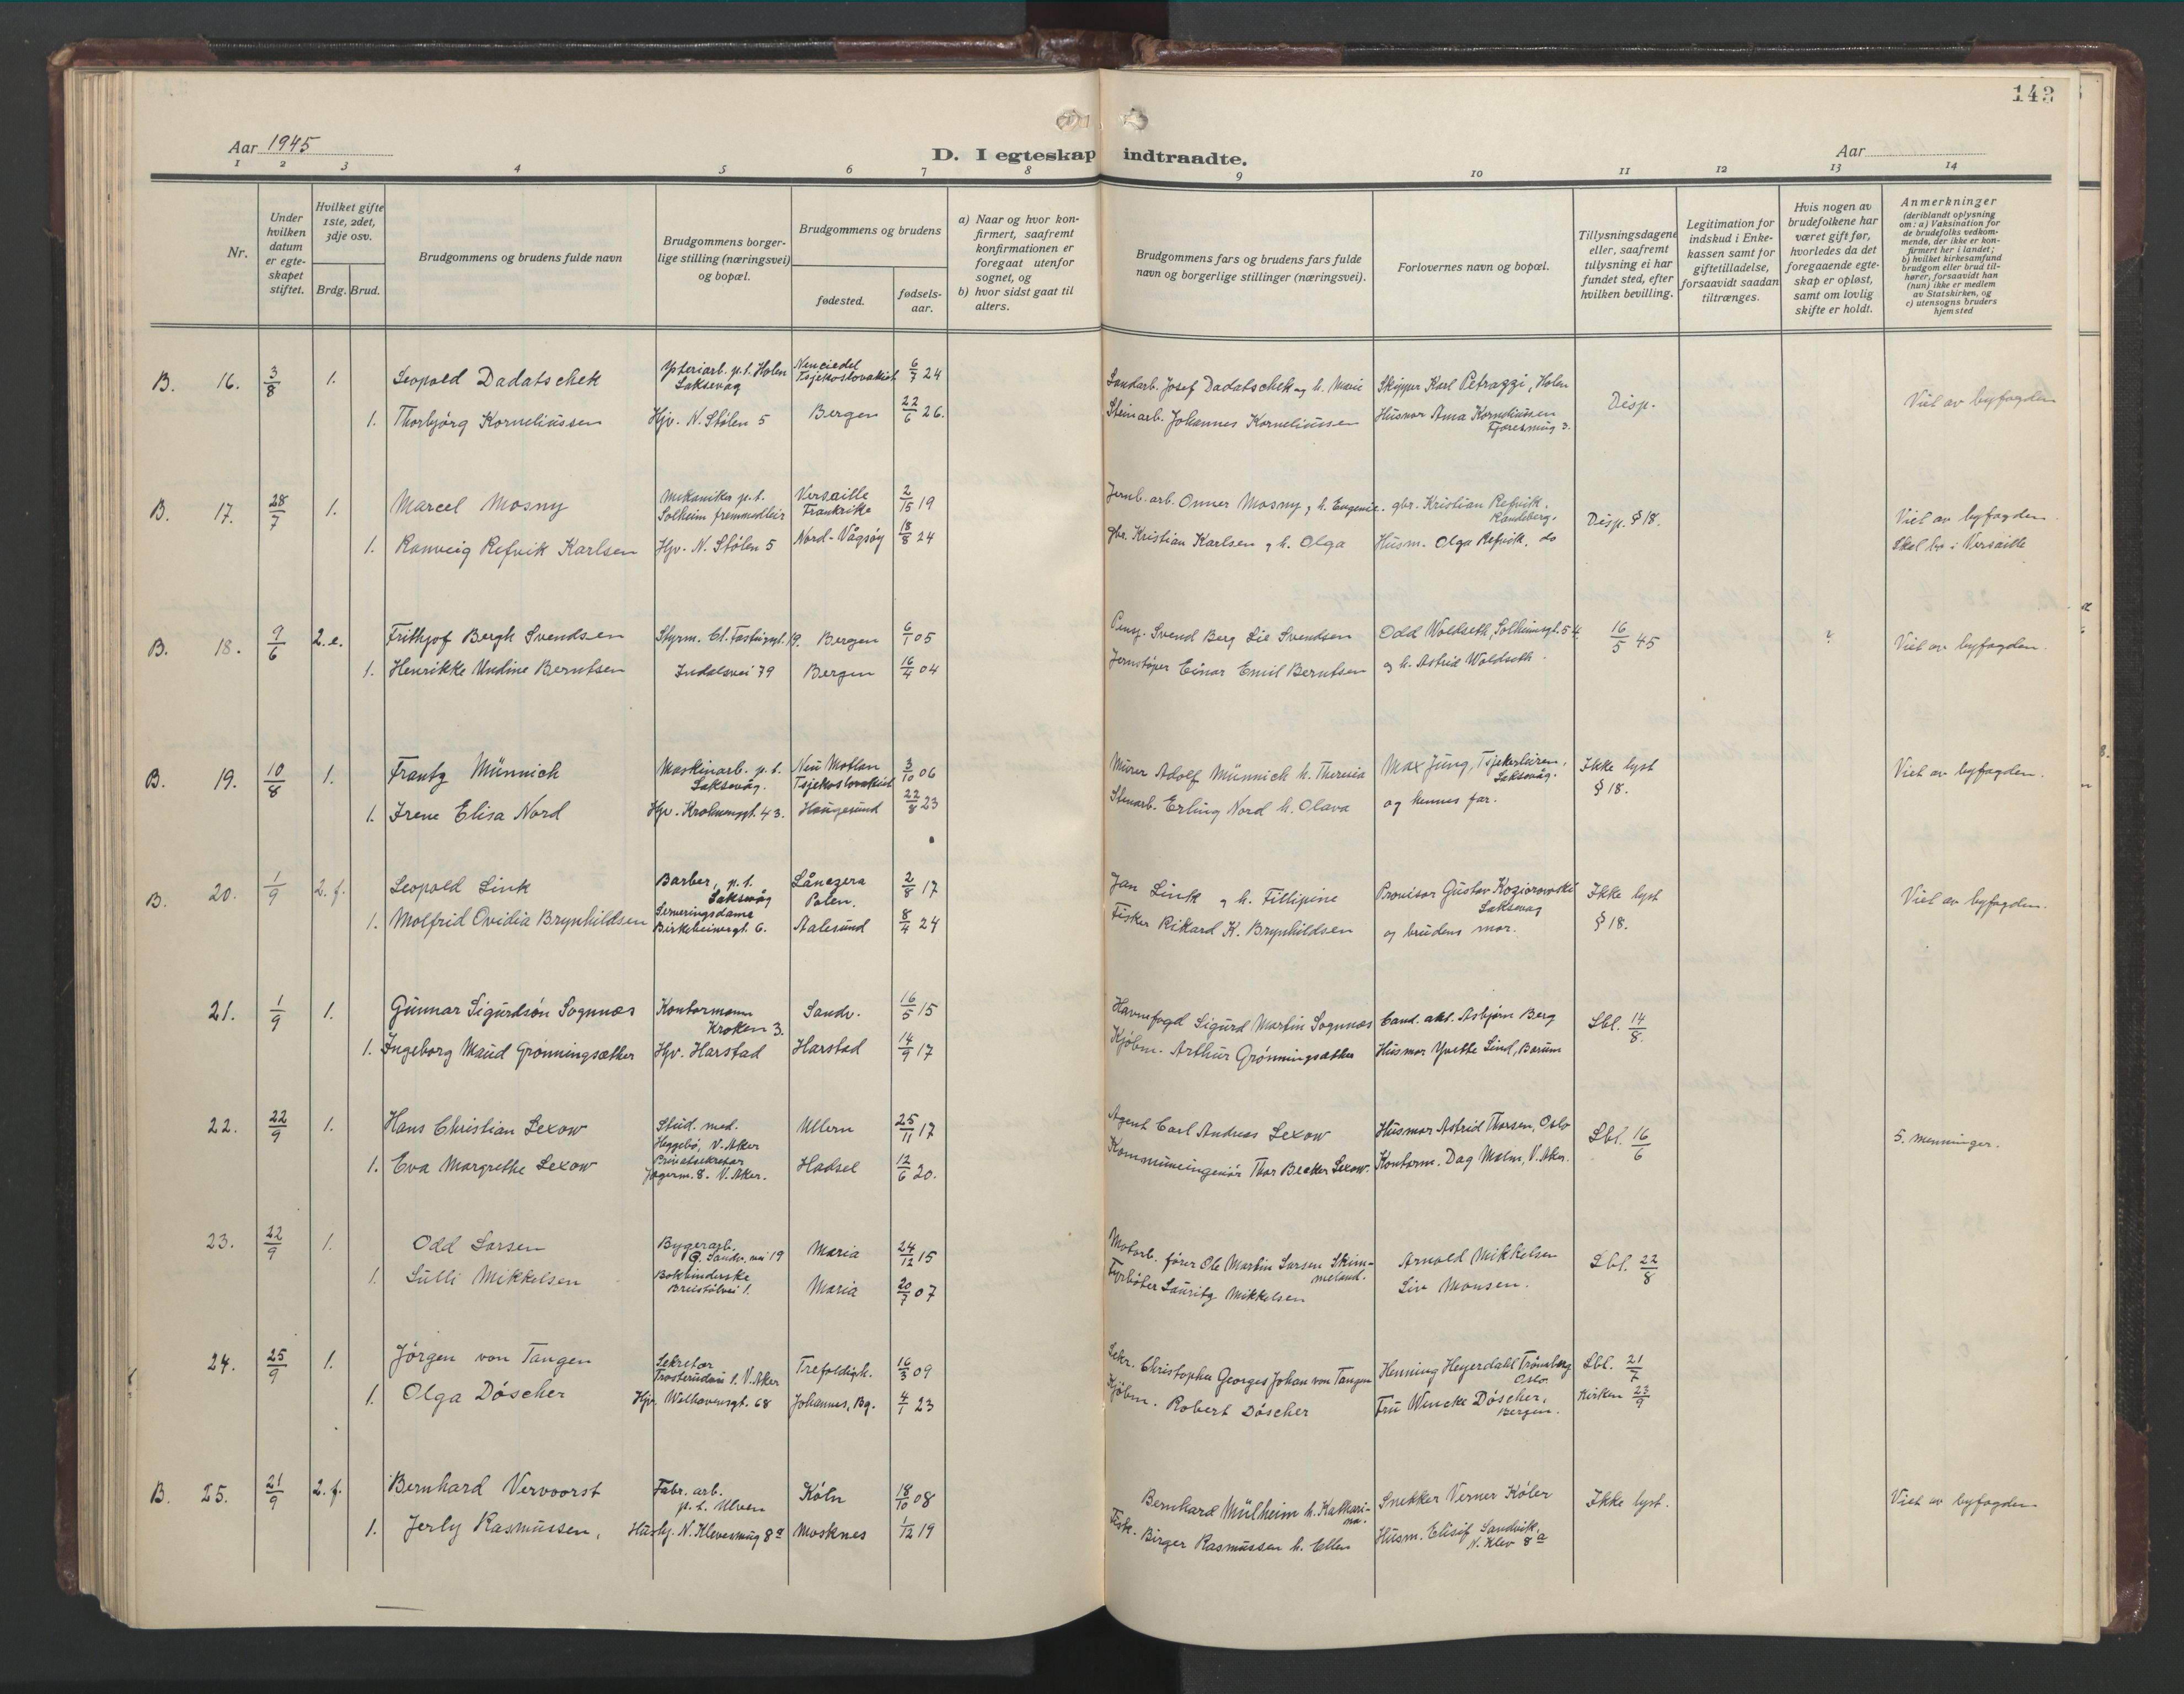 143
Aar 1945
D. I egteskap indtraadte.
Aar
1 2 3 4 5 6 7 8 9 10 11 12 13 14
Nr.
Under hvilken datum er egte-skapet stiftet.
Hvilket gifte 1ste, 2det, 3dje osv.
Brdg. Brud.
Brudgommens og brudens fulde navn
Brudgommens borger-
lige stilling (næringsvei)
og bopæl.
Brudgommens og brudens
fødested.
fødsels-
aar.
a) Naar og hvor kon-
firmert, saafremt
konfirmationen er
foregaat utenfor
sognet, og
b) hvor sidst gaat til
alters.
Brudgommens fars og brudens fars fulde
navn og borgerlige stillinger (næringsvei).
Forlovernes navn og bopæl.
Tillysningsdagene
eller, saafremt
tillysning ei har
fundet sted, efter
hvilken bevilling.
Legitimation for
indskud i Enke-
kassen samt for
giftetilladelse,
forsaavidt saadan
tiltrænges.
Hvis nogen av
brudefolkene har
været gift før,
hvorledes da det
foregaaende egte-
skap er opløst,
samt om lovlig
skifte er holdt.
Anmerkninger
(deriblandt oplysning
om: a) Vaksination for
de brudefolks vedkom-
mende, der ikke er kon-
firmert her i landet;
b) hvilket kirkesamfund
brudgom eller brud til-
hører, forsaavidt han
(hun) ikke er medlem
av Statskirken, og
c) utensogns bruders
hjemsted
B. 16. 3/8 1. Leopold Dadatschek Ysteriarb. p.t. Holen Laksevag Neuciedel Tsjekoslovakiet 6/7 24 Landarb. Josef Dadatschek og h. Marie Skipper Karl Petraggi, Holen Disp. Viet av byfogden
1. Thorbjørg Korneliussen Hjv. N. Stølen 5 Bergen 22/6 26. Steinarb. Johannes Korneliussen Husmor Anna Korneliussen Fjøresmug 3.
B. 17. 28/7 1. Marcel Mosny Mekaniker p.t. Solheim fremmedleir Versaille Frankrike 2/15 19 Jernb. arb. Onner Mosny, h. Eugenie. gbr. Kristian Refvik. Randeberg. Disp. § 18. Viet av byfogden.
1. Ranveig Refvik Karlsen Hjv. N. Stølen 5 Nord-Vågsøy 18/8 24 gbr. Kristian Karlsen og h. Olga Husm. Olga Refvik, do Skal bo i Versaille
B. 18. 9/6 2.e. Frithjof Bergh Svendsen Styrm. Chr. Fastingsgt. 19. Bergen 6/1 05 Pens. Svend Berg Lie Svendsen Odd Woldseth, Solheimsgt. 54 16/5 45 ? Viet av byfogden.
1. Henrikke Undine Berntsen Indalsvei 79 Bergen 16/4 04 Jernstøper Einar Emil Berntsen og h. Astrid Woldseth.
B. 19. 10/8 1. Frantz Münnich Maskinarb. p.t. Laksevåg. Neu Motlan Tsjekoslovakiet 3/10 06 Murer Adolf Münnich h. Theresia Max Jung, Tsjekerleiren, Laksevåg. Ikke lyst § 18. Viet av byfogden.
1. Irene Elisa Nord Hjv. Krohnengt. 43. Haugesund 22/8 23 Stenarb. Erling Nord h. Olava og hennes far.
B. 20. 1/9 2. f. Leopold Link Barber, p.t. Laksevåg Lånczera Polen. 2/8 17 Jan Link og h. Fillipine Provisor Gustav Koziorowski Laksevag Ikke lyst § 18. Viet av byfogden.
1. Molfrid Ovidia Brynhildsen Serveringsdame Birkebeinergt. 6. Aalesund 8/4 24 Fisker Rikard K. Brynhildsen og brudens mor.
21. 1/9 1. Gunnar Sigurdson Sognnæs Kontormann Kroken 3. Sandv. 16/5 15 Havnefogd Sigurd Martin Sognnæs Cand. akt. Asbjørn Berg Lbl. 14/8.
1. Ingeborg Maud Grønningsæther Hjv. Harstad Harstad 14/9 17 Kjøbm. Arthur Grønningsæther Husmor Yvette Lind, Bærum
22. 22/9 1. Hans Christian Lexow Stud. med. Heggebø, V. Aker Ullern 25/11 17 Agent Carl Andreas Lexow Husmor Astrid Thorsen, Oslo Lbl. 16/6 5. menninger.
1. Eva Margrethe Lexow Privatsekretær Jægerm. 8. V. Aker. Hadsel 12/6 20. Kommuneingeniør Thor Becker Lexow. Kontorm. Dag Malm, V. Aker.
23. 22/9 1. Odd Larsen Bygerarb. G. Sandv. vei 19 Maria 24/12 15 Motorb. fører Ole Martin Larsen Skim-meland. Arnold Mikkelsen Lbl. 22/8
1. Lulli Mikkelsen Bokbinderske Breistølvei 1. Maria 20/7 07 Fyrbøter Lauritz Mikkelsen Liv Monsen.
24. 25/9 1. Jörgen von Tangen Sekretær Trosterudvei 1. V. Aker Trefoldigh. 16/3 09 Sekr. Christopher Georges Johan von Tangen Henning Heyerdahl Trønsberg Oslo Lbl. 21/7
1. Olga Döscher Hjv. Welhavensgt. 68 Johannes, Bg. 4/1 23 Kjøbm. Robert Döscher Fru Wencke Döscher, Bergen. Kirken 23/9
B. 25. 21/9 2. f. Bernhard Vervoorst Fabr. arb. p.t. Ulven Köln 18/10 08 Bernhard Mülheim h. Kathari-na. Snekker Verner Köler Ikke lyst. Viet av byfogden
1. Jerly Rasmussen, Husbj. N. Klevesmug 8a Mosknes 1/12 19 Fisk. Birger Rasmussen h. Ellen Husm. Elisif Sandvik. N. Klev 8a